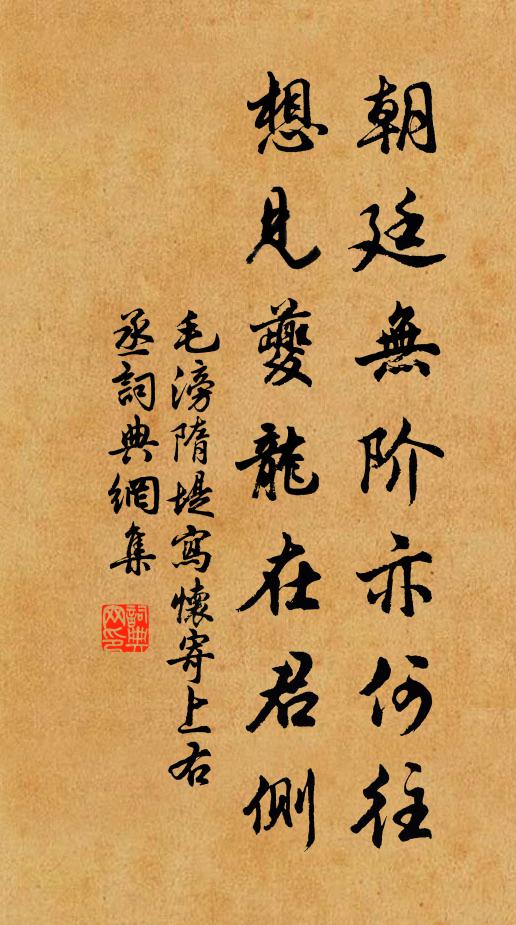 朝廷無阶亦何往
想見夔龍在君側
毛滂隋堤寫懷寄上右
丞詞典網集
詞典网印